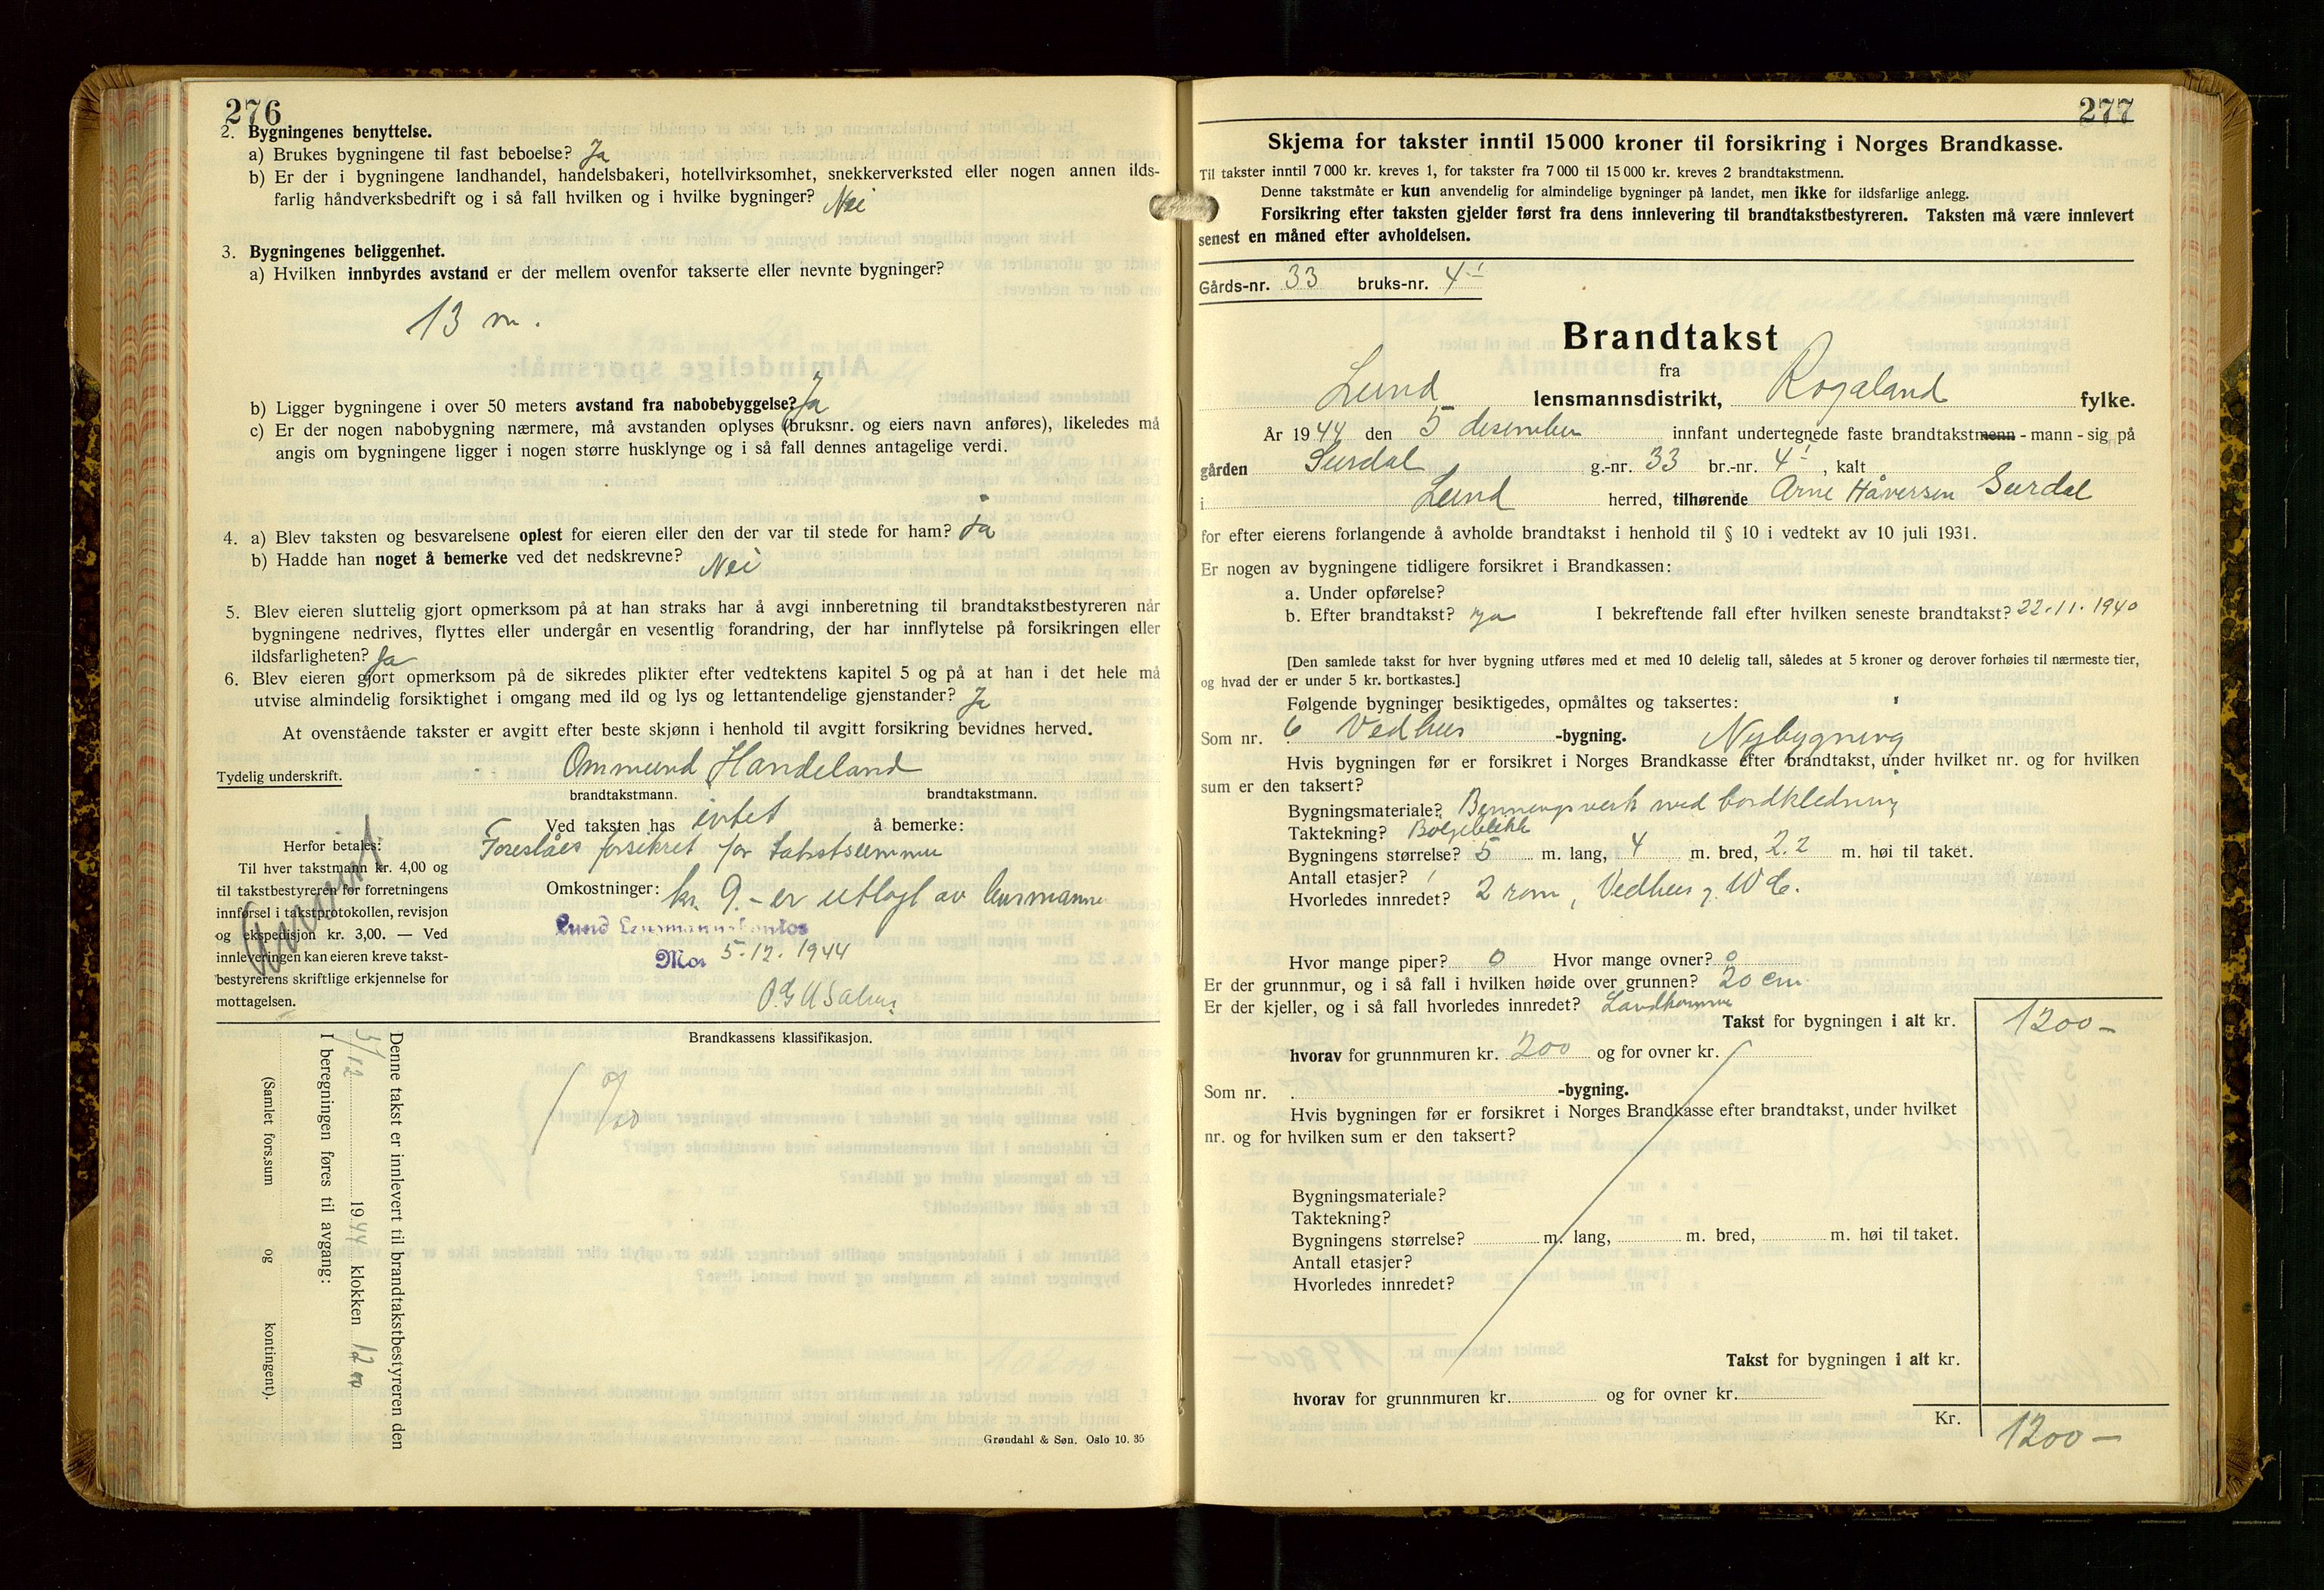 276
2. Bygningenes benyttelse.
a) Brukes bygningene til fast beboelse? Ja
b) Er der i bygningene landhandel, handelsbakeri, hotellvirksomhet, snekkerverksted eller nogen annen ilds-
farlig håndverksbedrift og i så fall hvilken og i hvilke bygninger? Nei
3. Bygningenes beliggenhet.
a) Hvilken innbyrdes avstand er der mellem ovenfor takserte eller nevnte bygninger?
13 m.
b) Ligger bygningene i over 50 meters avstand fra nabobebyggelse? Ja
c) Er der nogen nabobygning nærmere, må avstanden oplyses (bruksnr. og eiers navn anføres), likeledes må
angis om bygningene ligger i nogen større husklynge og i så fall dennes antagelige verdi.
4. a) Blev taksten og besvarelsene oplest for eieren eller den der var til stede for ham? Ja
b) Hadde han noget å bemerke ved det nedskrevne? Nei
5. Blev eieren sluttelig gjort opmerksom på at han straks har å avgi innberetning til brandtakstbestyreren når
bygningene nedrives, flyttes eller undergår en vesentlig forandring, der har innflytelse på forsikringen eller
ildsfarligheten? Ja
6. Blev eieren gjort opmerksom på de sikredes plikter efter vedtektens kapitel 5 og på at han i det hele må
utvise almindelig forsiktighet i omgang med ild og lys og lettantendelige gjenstander? Ja
At ovenstående takster er avgitt efter beste skjønn i henhold til avgitt forsikring bevidnes herved.
Tydelig underskrift. Ommund Handeland
brandtakstmann. brandtakstmann.
Ved taksten has intet å bemerke:
Foreslåes forsikret for takstsummen
Omkostninger: kr. 9.- er utlagt av lensmannen
Lund Lensmannskontor
Moi 5.12.1944
Herfor betales:
Til hver takstmann kr. 4,00 og
til takstbestyreren for forretningens
innførsel i takstprotokollen, revisjon
og ekspedisjon kr. 3,00. — Ved
innleveringen kan eieren kreve takst-
bestyrerens skriftlige erkjennelse for
mottagelsen.
Brandkassens klassifikasjon.
Denne takst er innlevert til brandtakstbestyreren den
5/12 1944 klokken 12 00
I beregningen føres til avgang:
(Samlet fors.sum og kontingent).
Grøndahl & Søn. Oslo 10. 35
277
Skjema for takster inntil 15 000 kroner til forsikring i Norges Brandkasse.
Til takster inntil 7 000 kr. kreves 1, for takster fra 7 000 til 15 000 kr. kreves 2 brandtakstmenn.
Denne takstmåte er kun anvendelig for almindelige bygninger på landet, men ikke for ildsfarlige anlegg.
Forsikring efter taksten gjelder først fra dens innlevering til brandtakstbestyreren. Taksten må være innlevert
senest en måned efter avholdelsen.
Gårds-nr. 33 bruks-nr. 4 1
Brandtakst
fra
Lund lensmannsdistrikt, Rogaland fylke.
År 1944 den 5 desember innfant undertegnede faste brandtakstmenn - mann - sig på
gården Surdal g.-nr. 33 br.-nr. 4 1, kalt
i Lund herred, tilhørende Arne Håversen Surdal
for efter eierens forlangende å avholde brandtakst i henhold til § 10 i vedtekt av 10 juli 1931.
Er nogen av bygningene tidligere forsikret i Brandkassen:
a. Under opførelse?
b. Efter brandtakst? Ja I bekreftende fall efter hvilken seneste brandtakst? 22.11.1940
[Den samlede takst for hver bygning utføres med et med 10 delelig tall, således at 5 kroner og derover forhøies til nærmeste tier,
og hvad der er under 5 kr. bortkastes.]
Følgende bygninger besiktigedes, opmåltes og taksertes:
Som nr. 6 Vedhus -bygning. Nybygning
Hvis bygningen før er forsikret i Norges Brandkasse efter brandtakst, under hvilket nr. og for hvilken
sum er den taksert?
Bygningsmateriale? Benningsverk med bordkledning
Taktekning? Bølgeblikk
Bygningens størrelse? 5 m. lang, 4 m. bred, 2.2 m. høi til taket.
Antall etasjer? 1
Hvorledes innredet? 2 rom, Vedhus og W C.
Hvor mange piper? 0 Hvor mange ovner? 0
Er der grunnmur, og i så fall i hvilken høide over grunnen? 20 cm.
Er der kjeller, og i så fall hvorledes innredet?
Takst for bygningen i alt kr. 1200 –
hvorav for grunnmuren kr. 200 og for ovner kr.
Som nr. -bygning.
Hvis bygningen før er forsikret i Norges Brandkasse efter brandtakst, under hvilket
nr. og for hvilken sum er den taksert?
Bygningsmateriale?
Taktekning?
Bygningens størrelse? m. lang, m. bred, m. høi til taket.
Antall etasjer?
Hvorledes innredet?
Takst for bygningen i alt kr.
hvorav for grunnmuren kr. og for ovner kr.
Kr. 1200 –